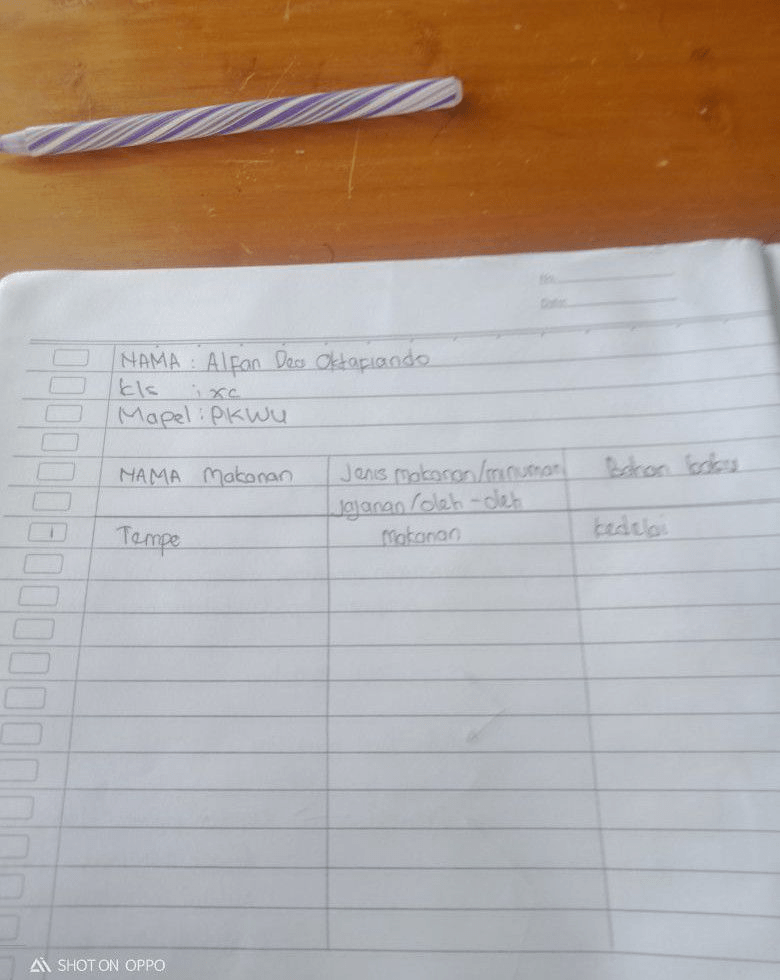 No.
Date:
NAMA : Alfan Deo Oktafiando
kls : xc
Mapel : PKWU
NAMA Makanan Jenis makanan/minuman Bahan baku
jajanan/oleh-oleh
1 Tempe makanan kedelai
SHOT ON OPPO